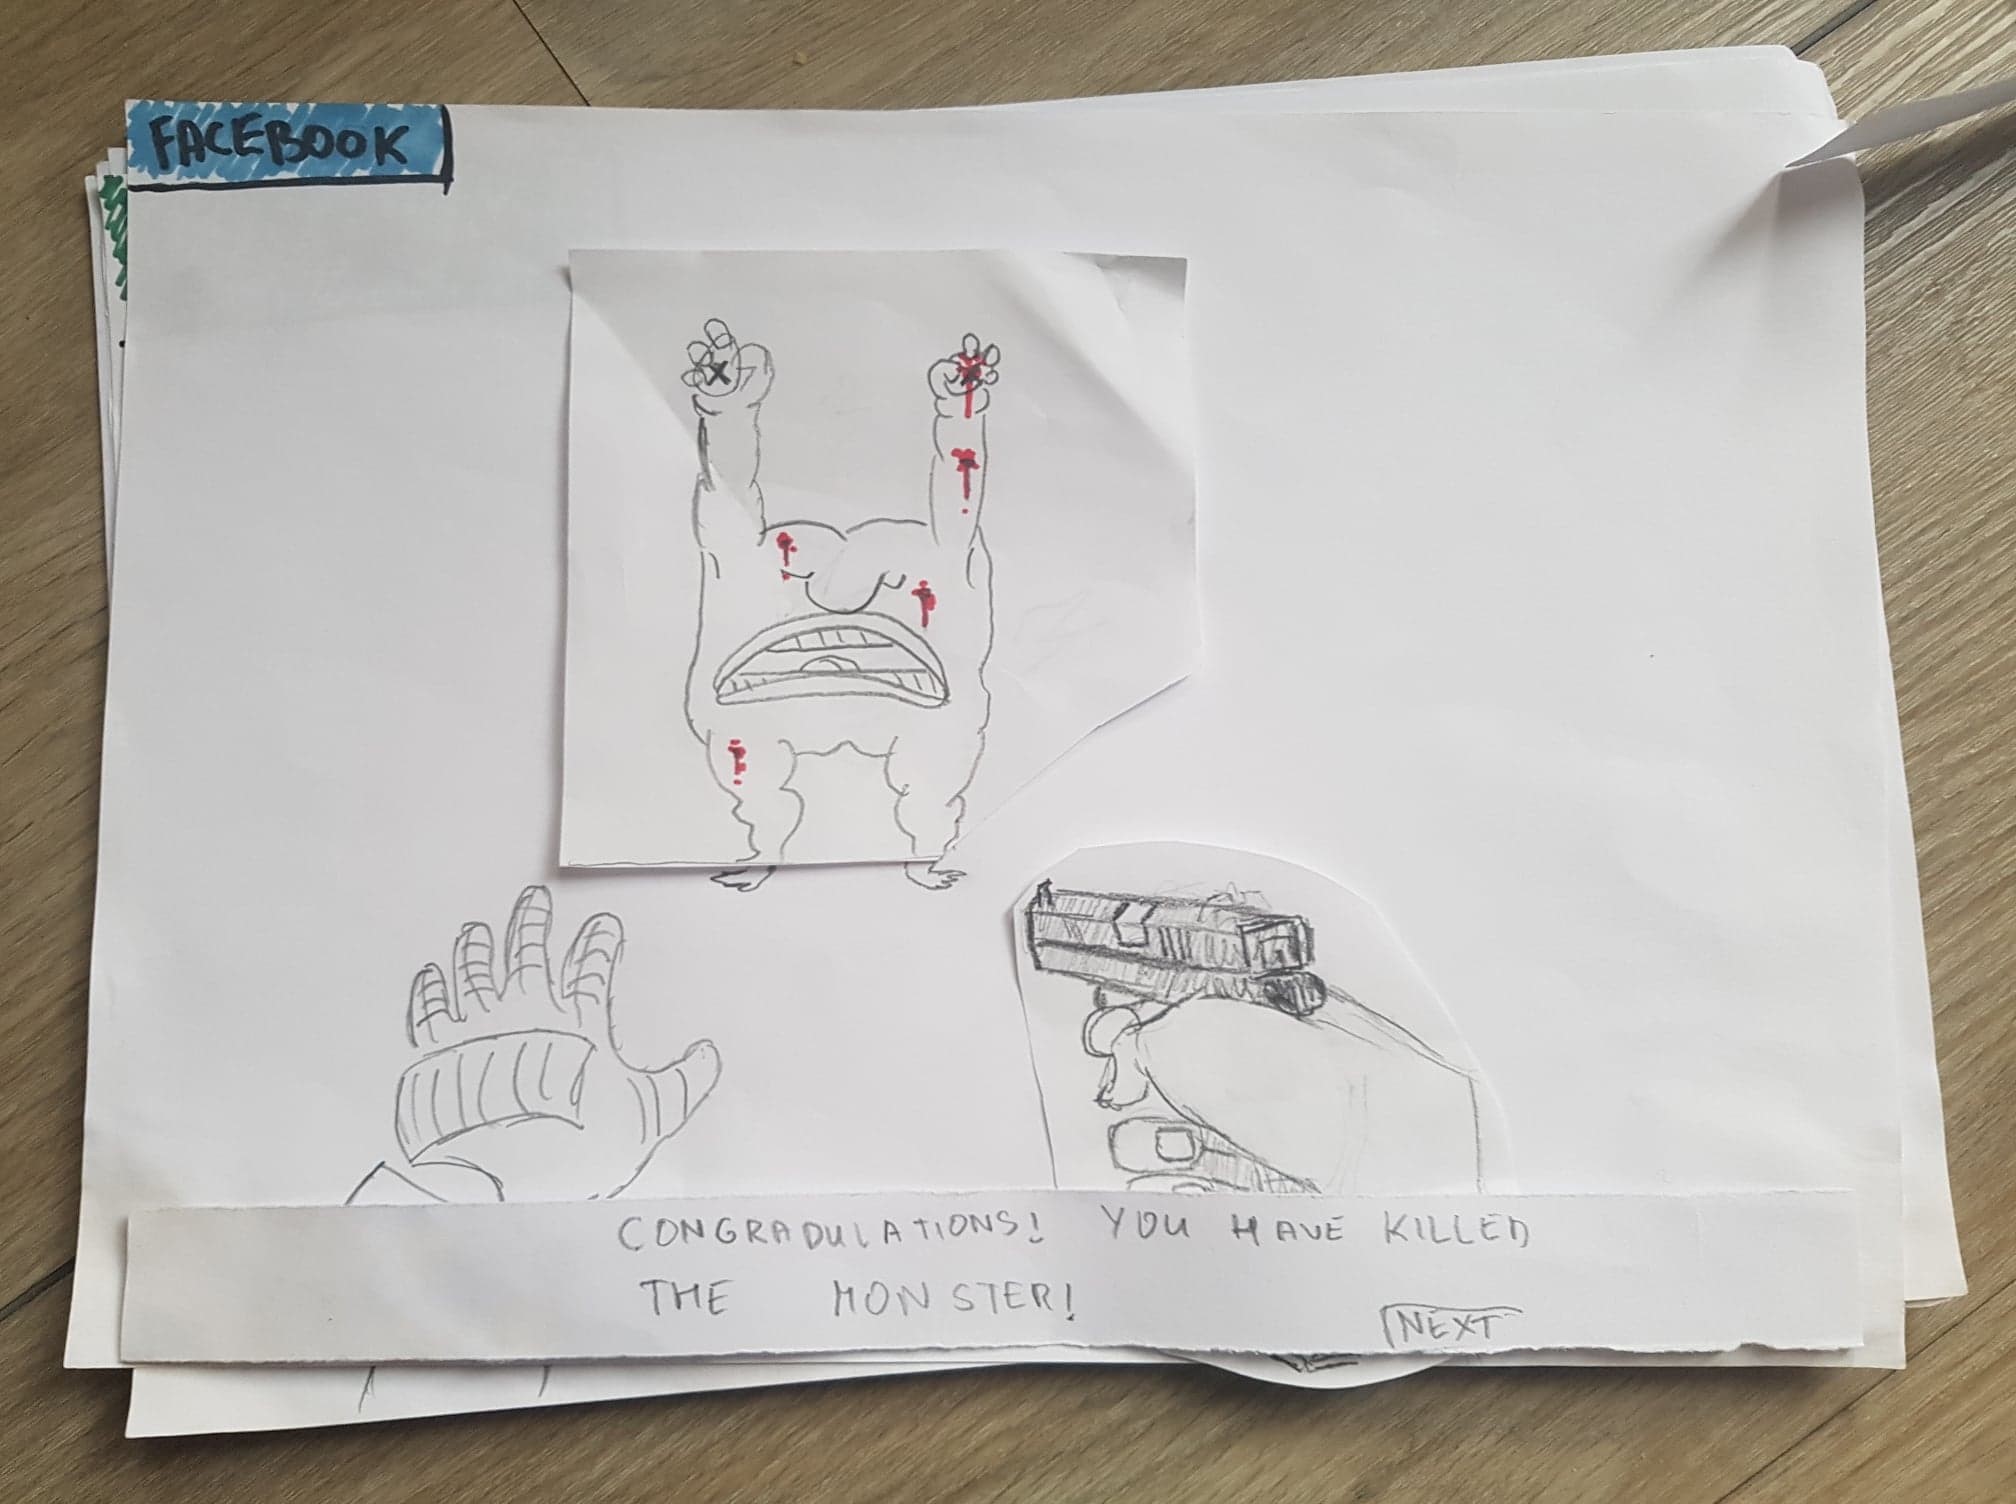 FACEBOOK
CONGRADULATIONS! YOU HAVE KILLED
THE MONSTER!
NEXT